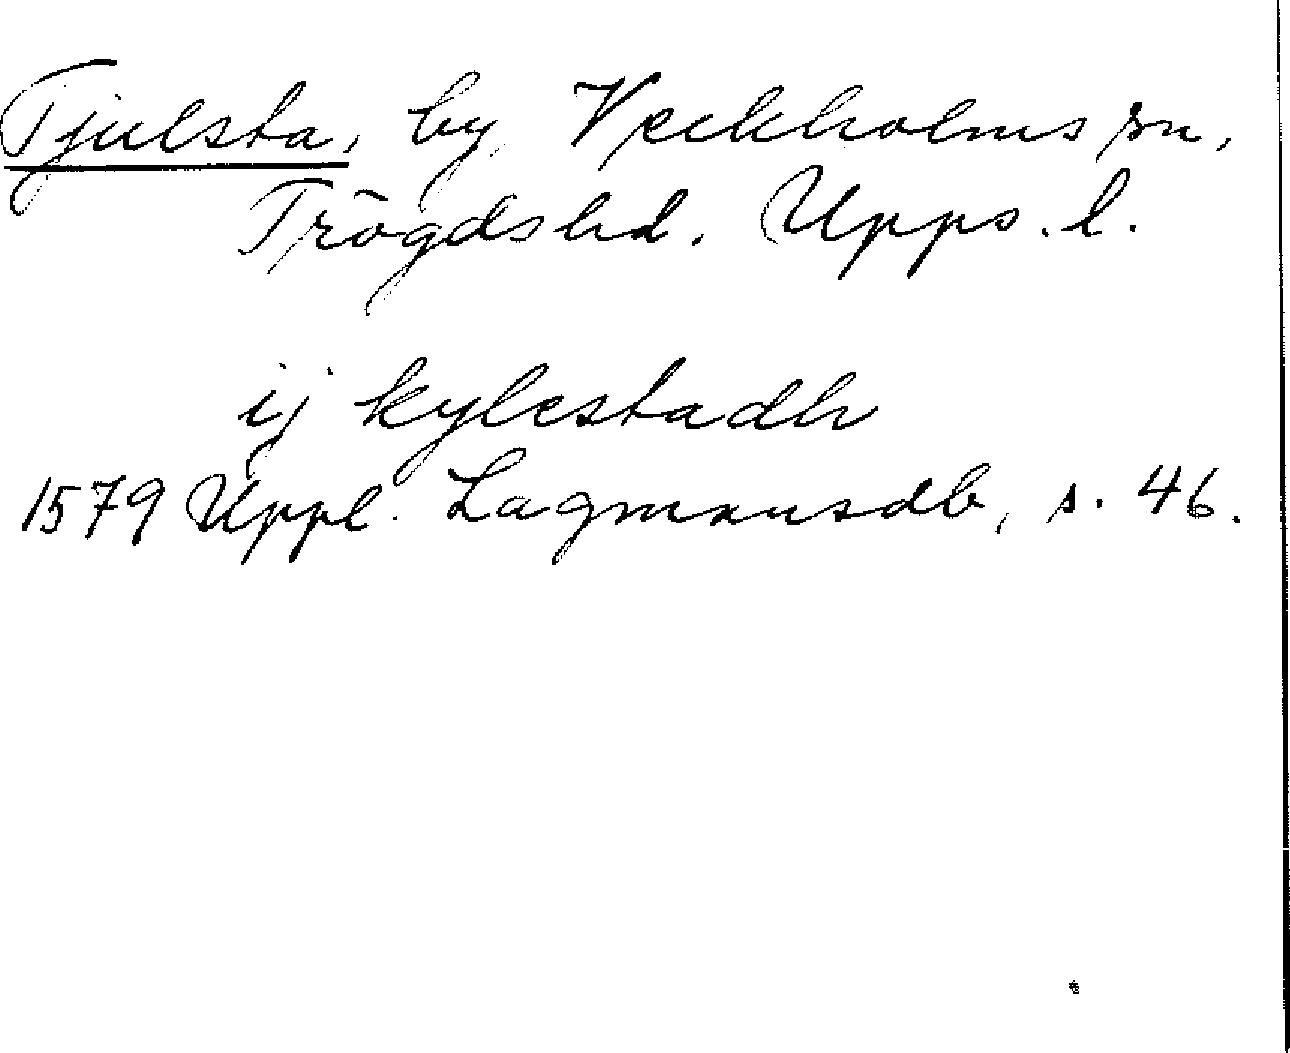 Tjulsta, by, Veckholms sn,
Trögds hd. Upps. l.
ij kylestadh
1579 Uppl. Lagmansdb, s. 46.